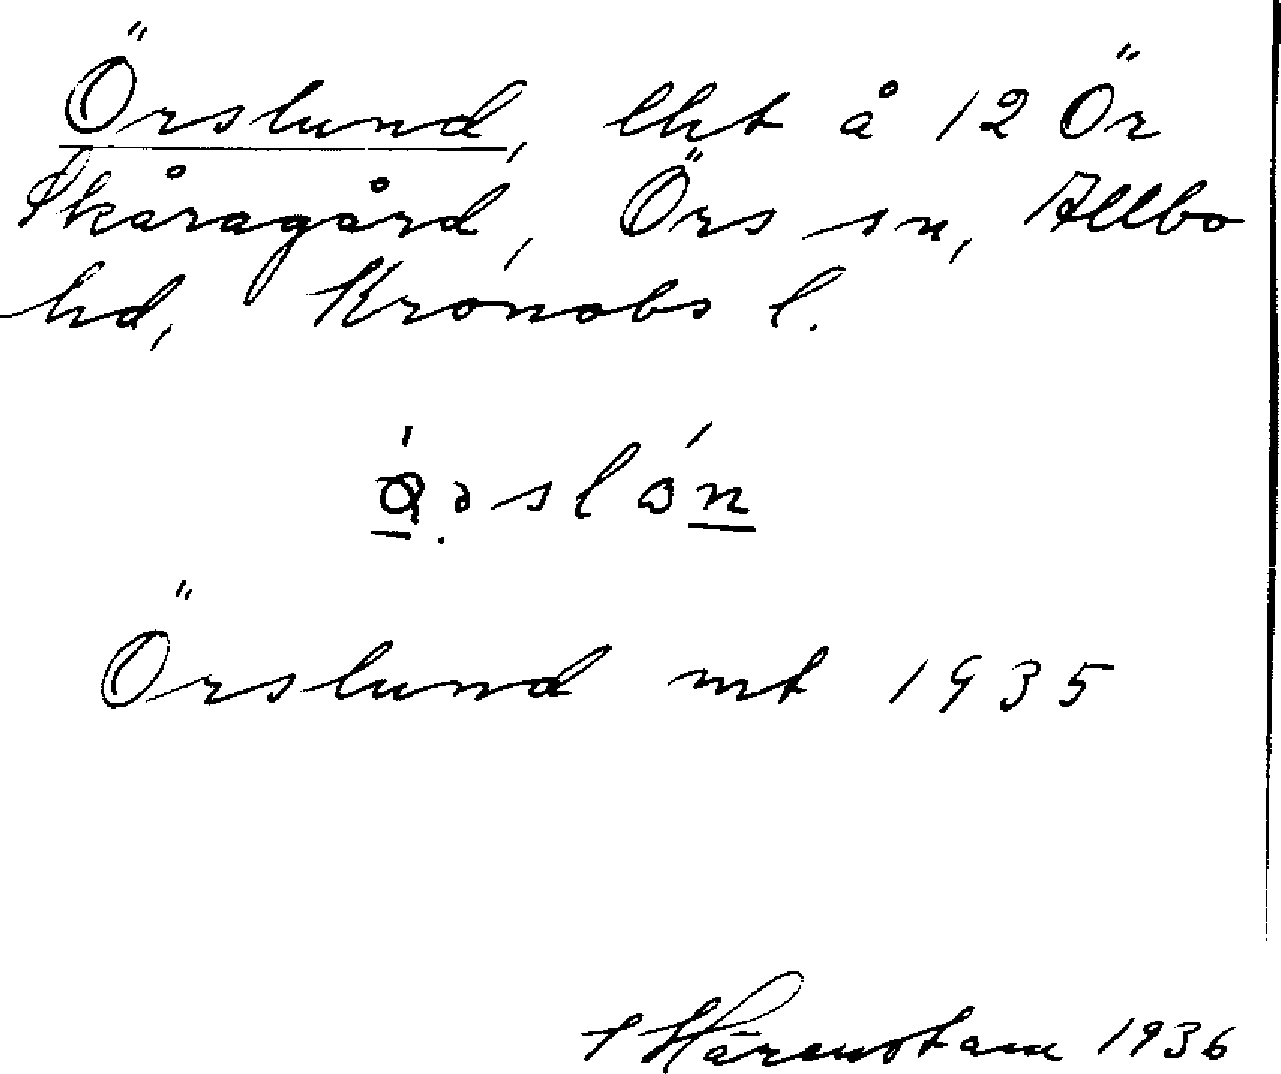 Örslund, lht å 12 Ör
Skåragård, Örs sn, Allbo
hd, Kronobs l.
Örslund mt 1935
Härenstam 1936